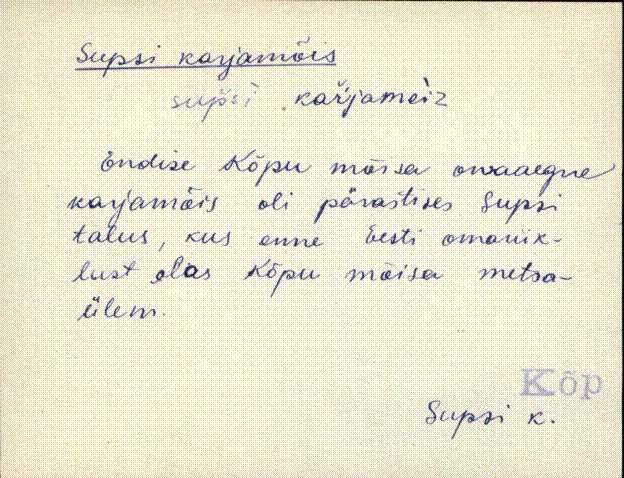 Supsi karjamõis
supśi kaŕjameiz
Endise Kõpu mõisa omaaegne
karjamõis oli pärastises Supsi
talus, kus enne Eesti omariik-
lust elas Kõpu mõisa metsa-
ülem.
Kõp
Supsi k.